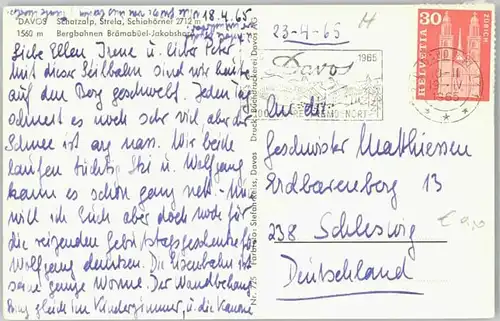 DAVOS Schatzalp, Strela, Schiahörner 2712 m
1560 m Bergbahnen Brämabüel-Jakobshorn
18.4.65
Liebe Ellen Irene u. lieber Peter
mit dieser Seilbahn sind wir heute
auf den Berg geschwebt. Jeden Tag
schneit es noch sehr viel aber der
Schnee ist arg nass. Wir beide
laufen tüchtig Ski u. Wolfgang
kann es schon ganz nett. Nun
will ich Euch aber doch noch für
die reizenden Geburtstagsgeschenke für
Wolfgang danken. Die Eisenbahn ist
seine ganze Wonne. Der Wandbehang
hing gleich im Kinderzimmer, u. die Kanone
Nr. 725 Farbfoto: Stefani Weiss, Davos Druck: Buchdruckerei Davos AG
23-4-65
H
1965
Davos
HELVETIA
30
ZÜRICH
1965
An die
Geschwister Matthiessen
Erdbeerenberg 13
238 Schleswig
Deutschland